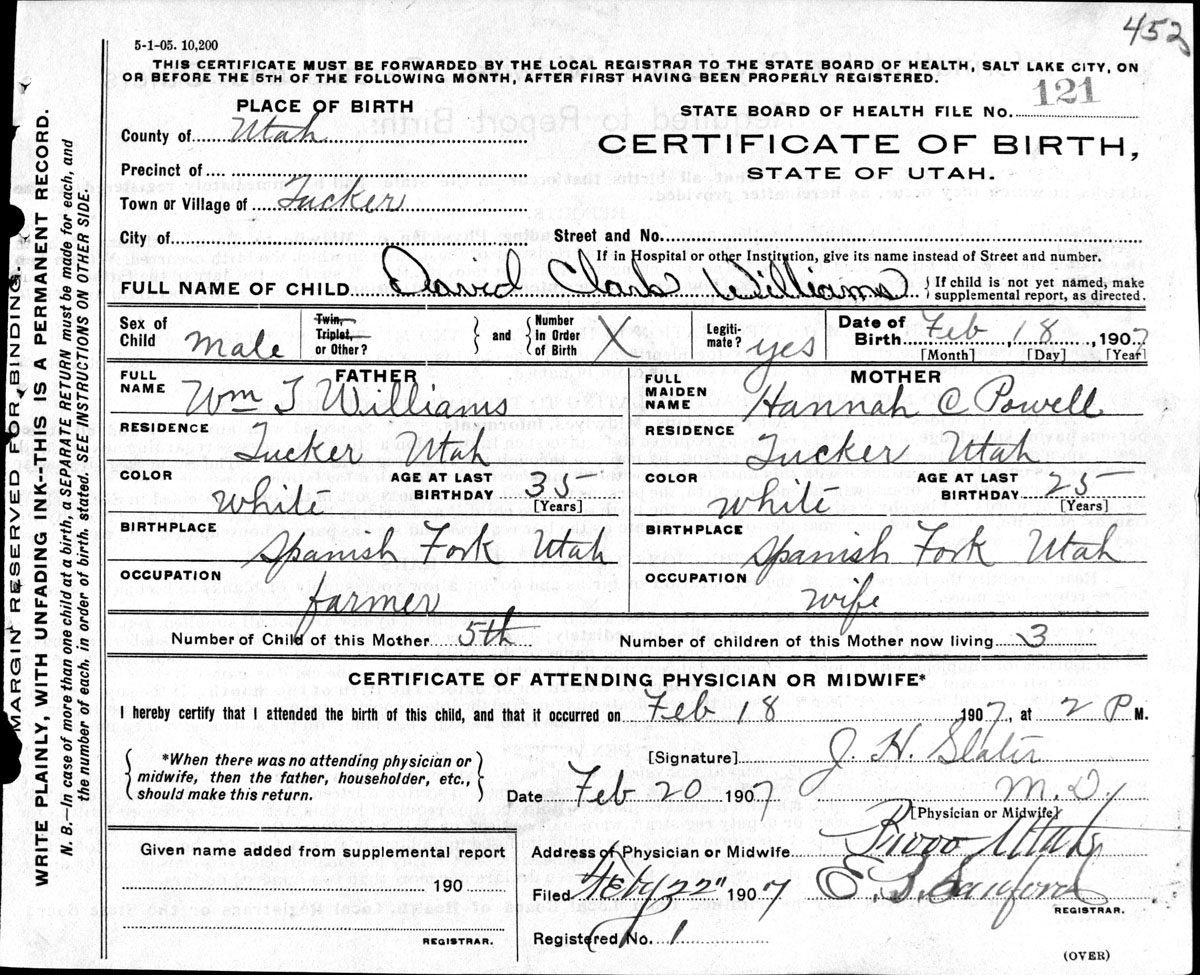 452
5-1-05. 10,200
THIS CERTIFICATE MUST BE FORWARDED BY THE LOCAL REGISTRAR TO THE STATE BOARD OF HEALTH, SALT LAKE CITY, ON
OR BEFORE THE 5TH OF THE FOLLOWING MONTH, AFTER FIRST HAVING BEEN PROPERLY REGISTERED.
PLACE OF BIRTH
STATE BOARD OF HEALTH FILE No. 121
County of Utah
CERTIFICATE OF BIRTH,
STATE OF UTAH.
Precinct of
Town or Village of Tucker
City of Street and No.
If in Hospital or other Institution, give its name instead of Street and number.
FULL NAME OF CHILD David Clark Williams { If child is not yet named, make
supplemental report, as directed.
Sex of Child Male Twin, Triplet, or Other? } and { Number In Order of Birth X Legiti-mate? yes Date of Birth Feb 18, 1907
[Month] [Day] [Year]
FATHER MOTHER
FULL NAME Wm J Williams FULL MAIDEN NAME Hannah C Powell
RESIDENCE Tucker Utah RESIDENCE Tucker Utah
COLOR White AGE AT LAST BIRTHDAY 35 [Years] COLOR White AGE AT LAST BIRTHDAY 25 [Years]
BIRTHPLACE Spanish Fork Utah BIRTHPLACE Spanish Fork Utah
OCCUPATION farmer OCCUPATION Wife
Number of Child of this Mother 5th Number of children of this Mother now living 3
CERTIFICATE OF ATTENDING PHYSICIAN OR MIDWIFE*
I hereby certify that I attended the birth of this child, and that it occurred on Feb 18 1907, at 2 P M.
*When there was no attending physician or
midwife, then the father, householder, etc.,
should make this return.
[Signature] J. H. Slater
Date Feb 20 1907 M.D.
[Physician or Midwife]
Given name added from supplemental report
190
REGISTRAR.
Address of Physician or Midwife Provo Utah
Filed Feby 22" 1907 E. S. Sanford
REGISTRAR.
Registered No. 1
(OVER)
MARGIN RESERVED FOR BINDING.
WRITE PLAINLY, WITH UNFADING INK--THIS IS A PERMANENT RECORD.
N. B.—In case of more than one child at a birth, a SEPARATE RETURN must be made for each, and
the number of each, in order of birth, stated. SEE INSTRUCTIONS ON OTHER SIDE.